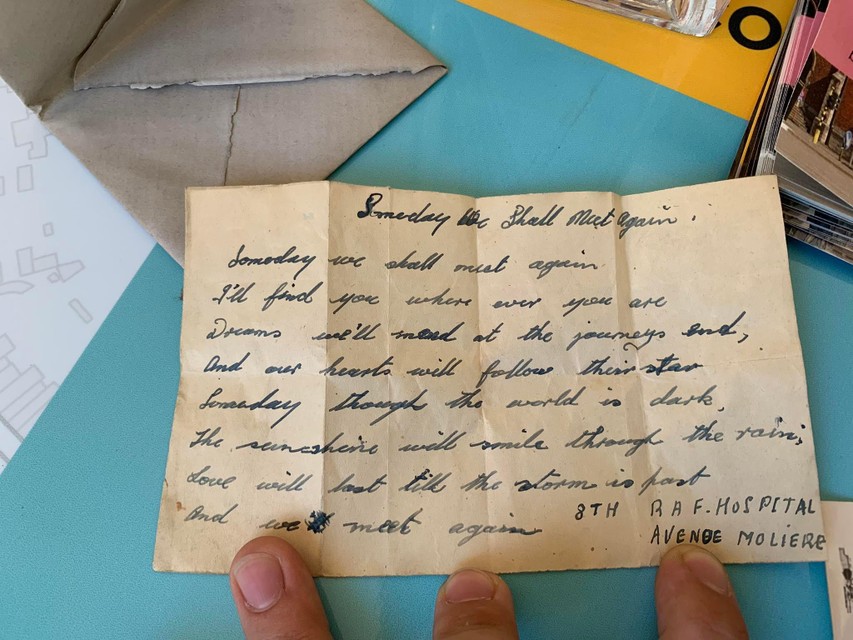 Someday We Shall Meet Again.
Someday we shall meet again
I'll find you where ever you are
Dreams we'll mend at the journeys end,
And our hearts will follow their star
Someday though the world is dark,
The sunsshine will smile through the rain;
Love will last till the storm is past
And we meet again
8TH R A F. HOSPITAL
AVENUE MOLIERE
O